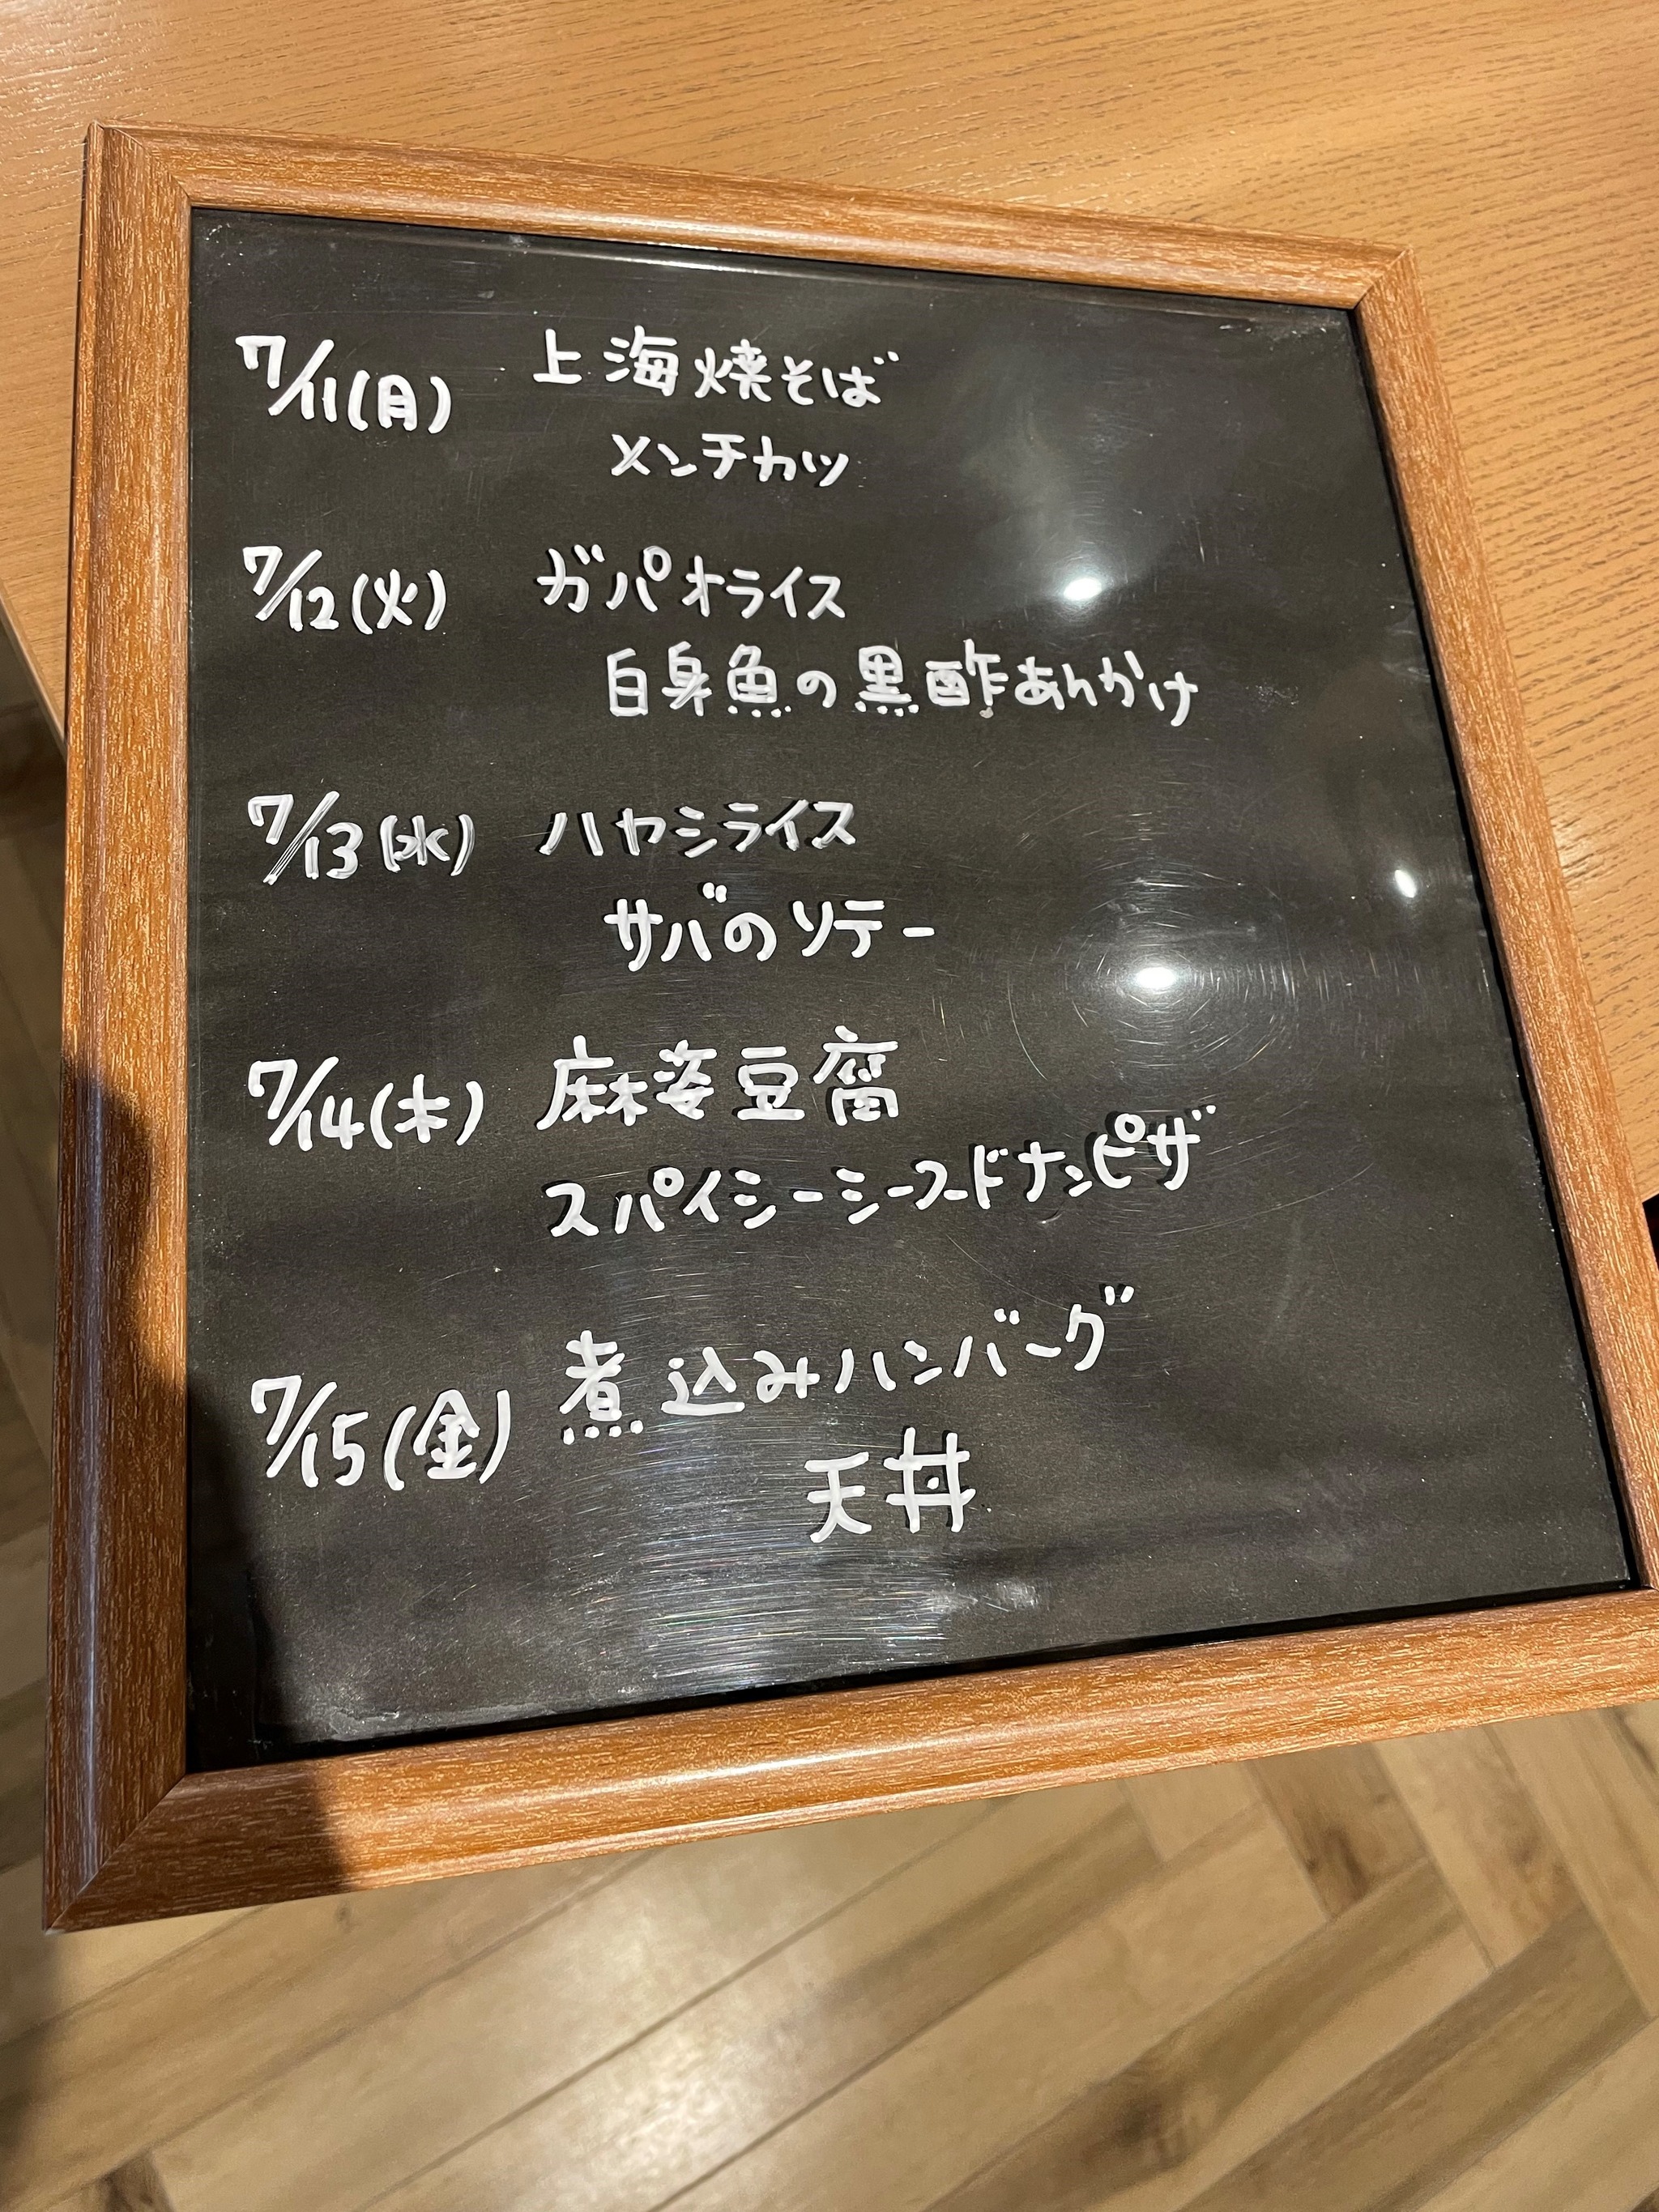 7/11(月) 上海焼そば
メンチカツ
7/12(火) ガパオライス
白身魚の黒酢あんかけ
7/13(水) ハヤシライス
サバのソテー
7/14(木) 麻婆豆腐
スパイシーシーフードナンピザ
7/15(金) 煮込みハンバーグ
天丼